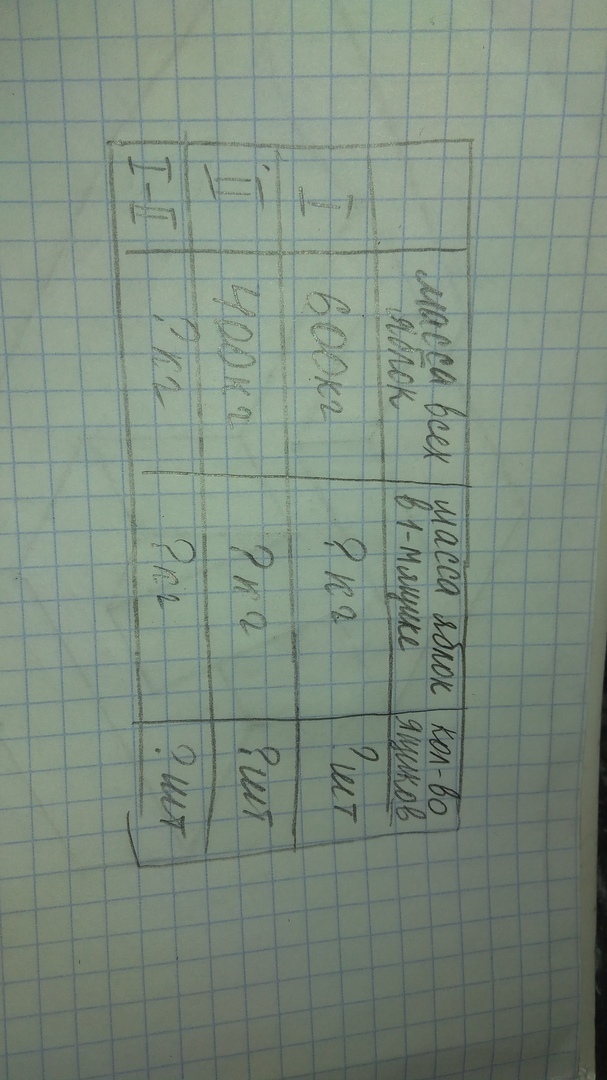 масса всех яблок
масса яблок в 1-м ящике
кол-во ящиков
I 600кг ?кг ?шт
II 400кг ?кг ?шт
I-II ?кг ?кг ?шт